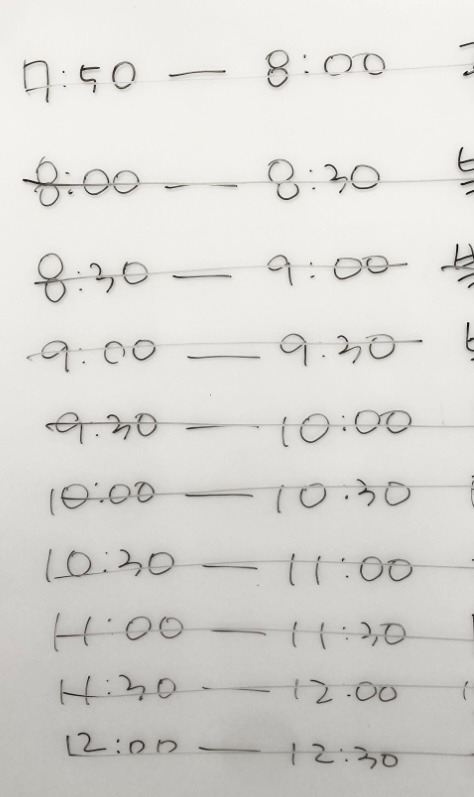 7:50 — 8:00
8:00 — 8:30
8:30 — 9:00
9:00 — 9.30
9.30 — 10:00
10:00 — 10.30
10:30 — 11:00
11:00 — 11:30
11:30 — 12.00
12:00 — 12:30